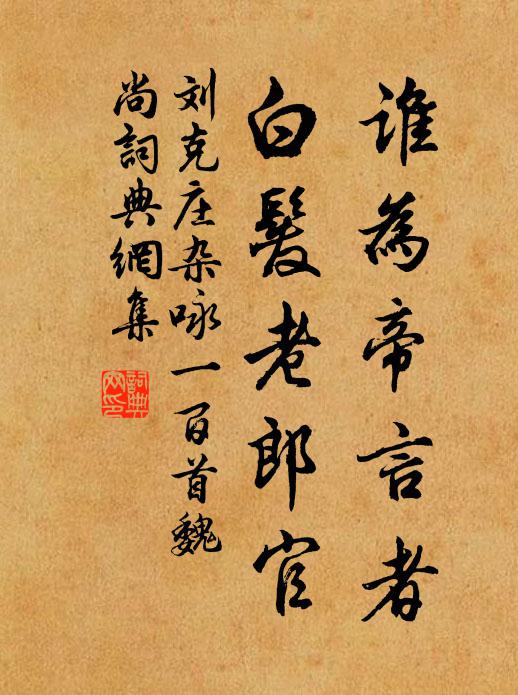 谁為帝言者
白髮老郎官
刘克庄杂咏一百首魏
尚詞典網集
詞典
网印